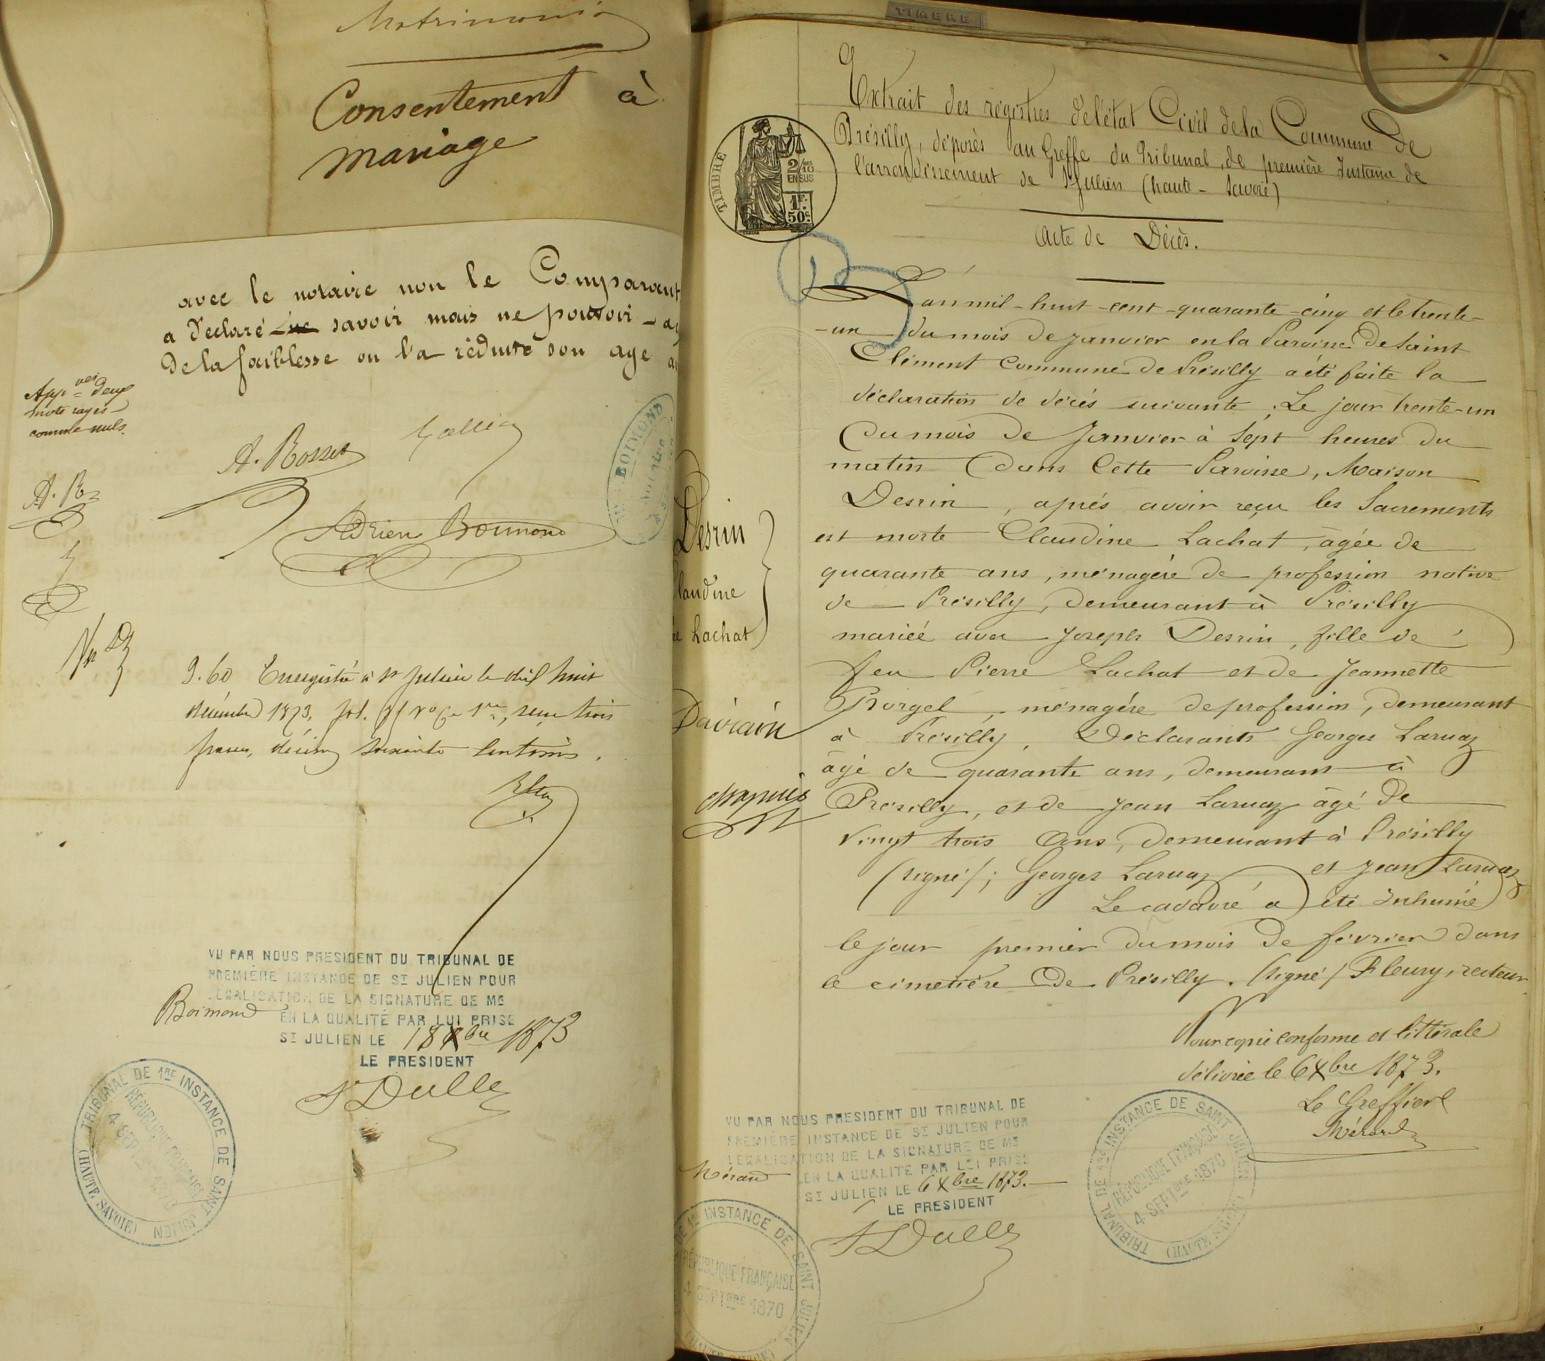 Matrimonia
Consentement à
mariage
avec le notaire non le Comparant
a déclaré savoir mais ne pouvoir
de la faiblesse ou l'a réduite son age
App.ver deux
mots rayés
comme nuls.
A. Rosset
A. R.
BOIMOND
Adrien Boimond
3.60 Enregistré à St Julien le huit
décembre 1873, fol. reçu trois
francs, décimes soixante centimes.
VU PAR NOUS PRESIDENT DU TRIBUNAL DE
PREMIÈRE INSTANCE DE ST JULIEN POUR
LEGALISATION DE LA SIGNATURE DE ME
Boimond EN LA QUALITÉ PAR LUI PRISE
ST JULIEN LE 18 Xbre 1873
LE PRESIDENT
TRIBUNAL DE 1RE INSTANCE DE SAINT JULIEN
(HAUTE SAVOIE)
RÉPUBLIQUE FRANÇAISE
4 SEPTBRE 1870
TIMBRE
Extrait des registres de l'état Civil de la Commune De
Présilly, déposés au Greffe du Tribunal, de première Instance de
l'arrondissement de St Julien (haute - Savoie)
TIMBRE
2/10
EN SUS
1F.
50c
Acte de Décès.
L'an mil-huit-cent-quarante-cinq et le trente-
-un du mois de janvier en la Paroisse De Saint
Clément Commune de Présilly a été faite la
déclaration de décès suivante; Le jour trente-un
Du mois de Janvier à Sept heures du
matin Dans Cette Paroisse, Maison
Desrin, après avoir reçu les Sacrements
est morte Claudine Lachat, âgée de
quarante ans, ménagère de profession native
de Présilly, demeurant à Présilly
mariée avec Joseph Desrin, fille de
feu Pierre Lachat et de Jeannette
Rorgel, ménagère de profession, demeurant
à Présilly, Déclarants Georges Laruaz
âgé de quarante ans, demeurant à
Présilly, et de Jean Laruaz âgé De
Vingt trois ans, demeurant à Présilly
(signé); Georges Laruaz et Jean Laruaz
Le cadavre a été Inhumé
le jour premier du mois De février dans
le cimetière De Présilly. (signé) Fleury, recteur.
Desrin
Claudine
née Lachat
Pour copie conforme et littérale
délivrée le 6 Xbre 1873.
Le Greffier
Mérand
VU PAR NOUS PRESIDENT DU TRIBUNAL DE
PREMIÈRE INSTANCE DE ST JULIEN POUR
LEGALISATION DE LA SIGNATURE DE ME
Mérand EN LA QUALITÉ PAR LUI PRISE
ST JULIEN LE 6 Xbre 1873.
LE PRESIDENT
TRIBUNAL DE 1RE INSTANCE DE SAINT JULIEN
(HAUTE SAVOIE)
RÉPUBLIQUE FRANÇAISE
4 SEPTBRE 1870
DE 1RE INSTANCE DE SAINT JULIEN
RÉPUBLIQUE FRANÇAISE
4 SEPTBRE 1870